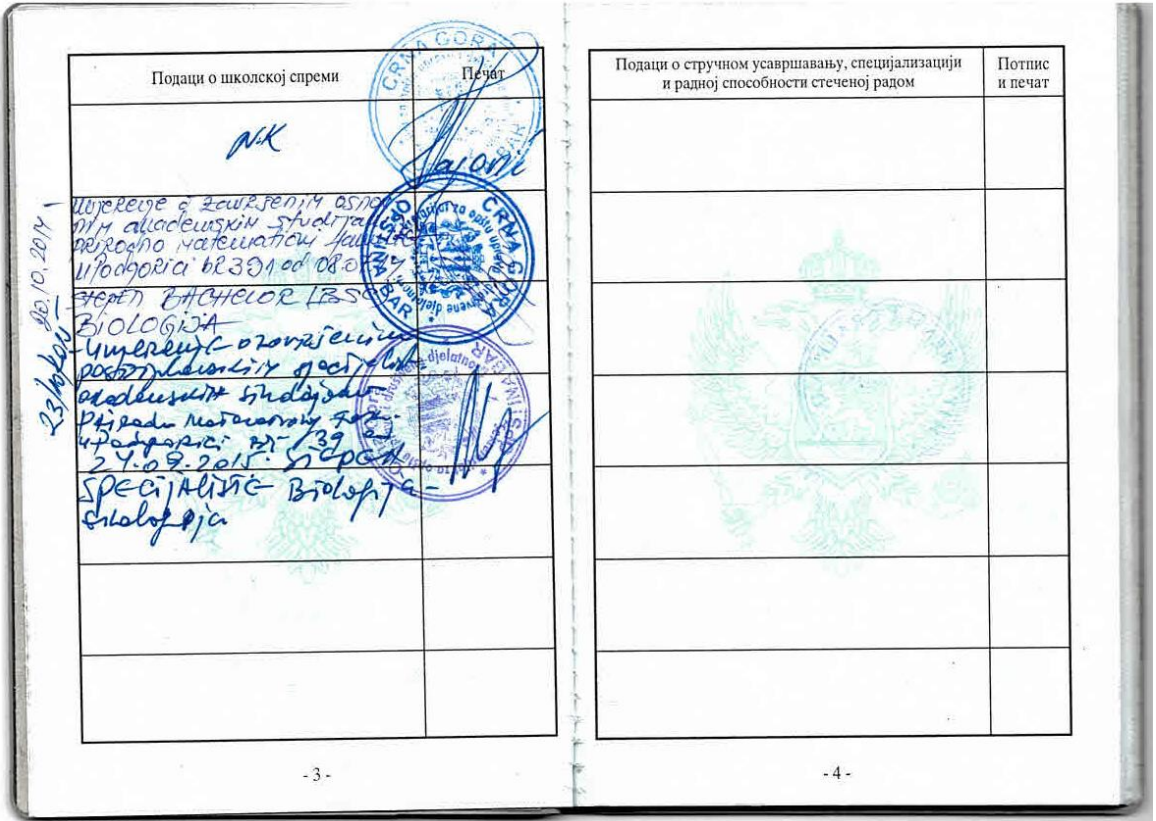 Подаци о школској спреми
Печат
NK
20.10.2014
Uvjerenje o završenim osno-
vnim akademskim studija
prirodno matematički
u Podgorici br 391 od 08.0
stepen BACHELOR (BSC
BIOLOGIJA
- Uvjerenje o završenim
postdiplomskim specijalist
akademskim studijama
Prirodno matematički
u Podgorici br- 139 od
24.09.2015. STEPEN
SPECIJALISTE Biologija-
Ekologija
CRNA GORA
BAR
CRNA GORA
OPŠTINA BAR
za opštu upravu
društvene djelatnosti
OPŠTINA BAR
- 3 -
Подаци о стручном усавршавању, специјализацији
и радној способности стеченој радом
Потпис
и печат
- 4 -